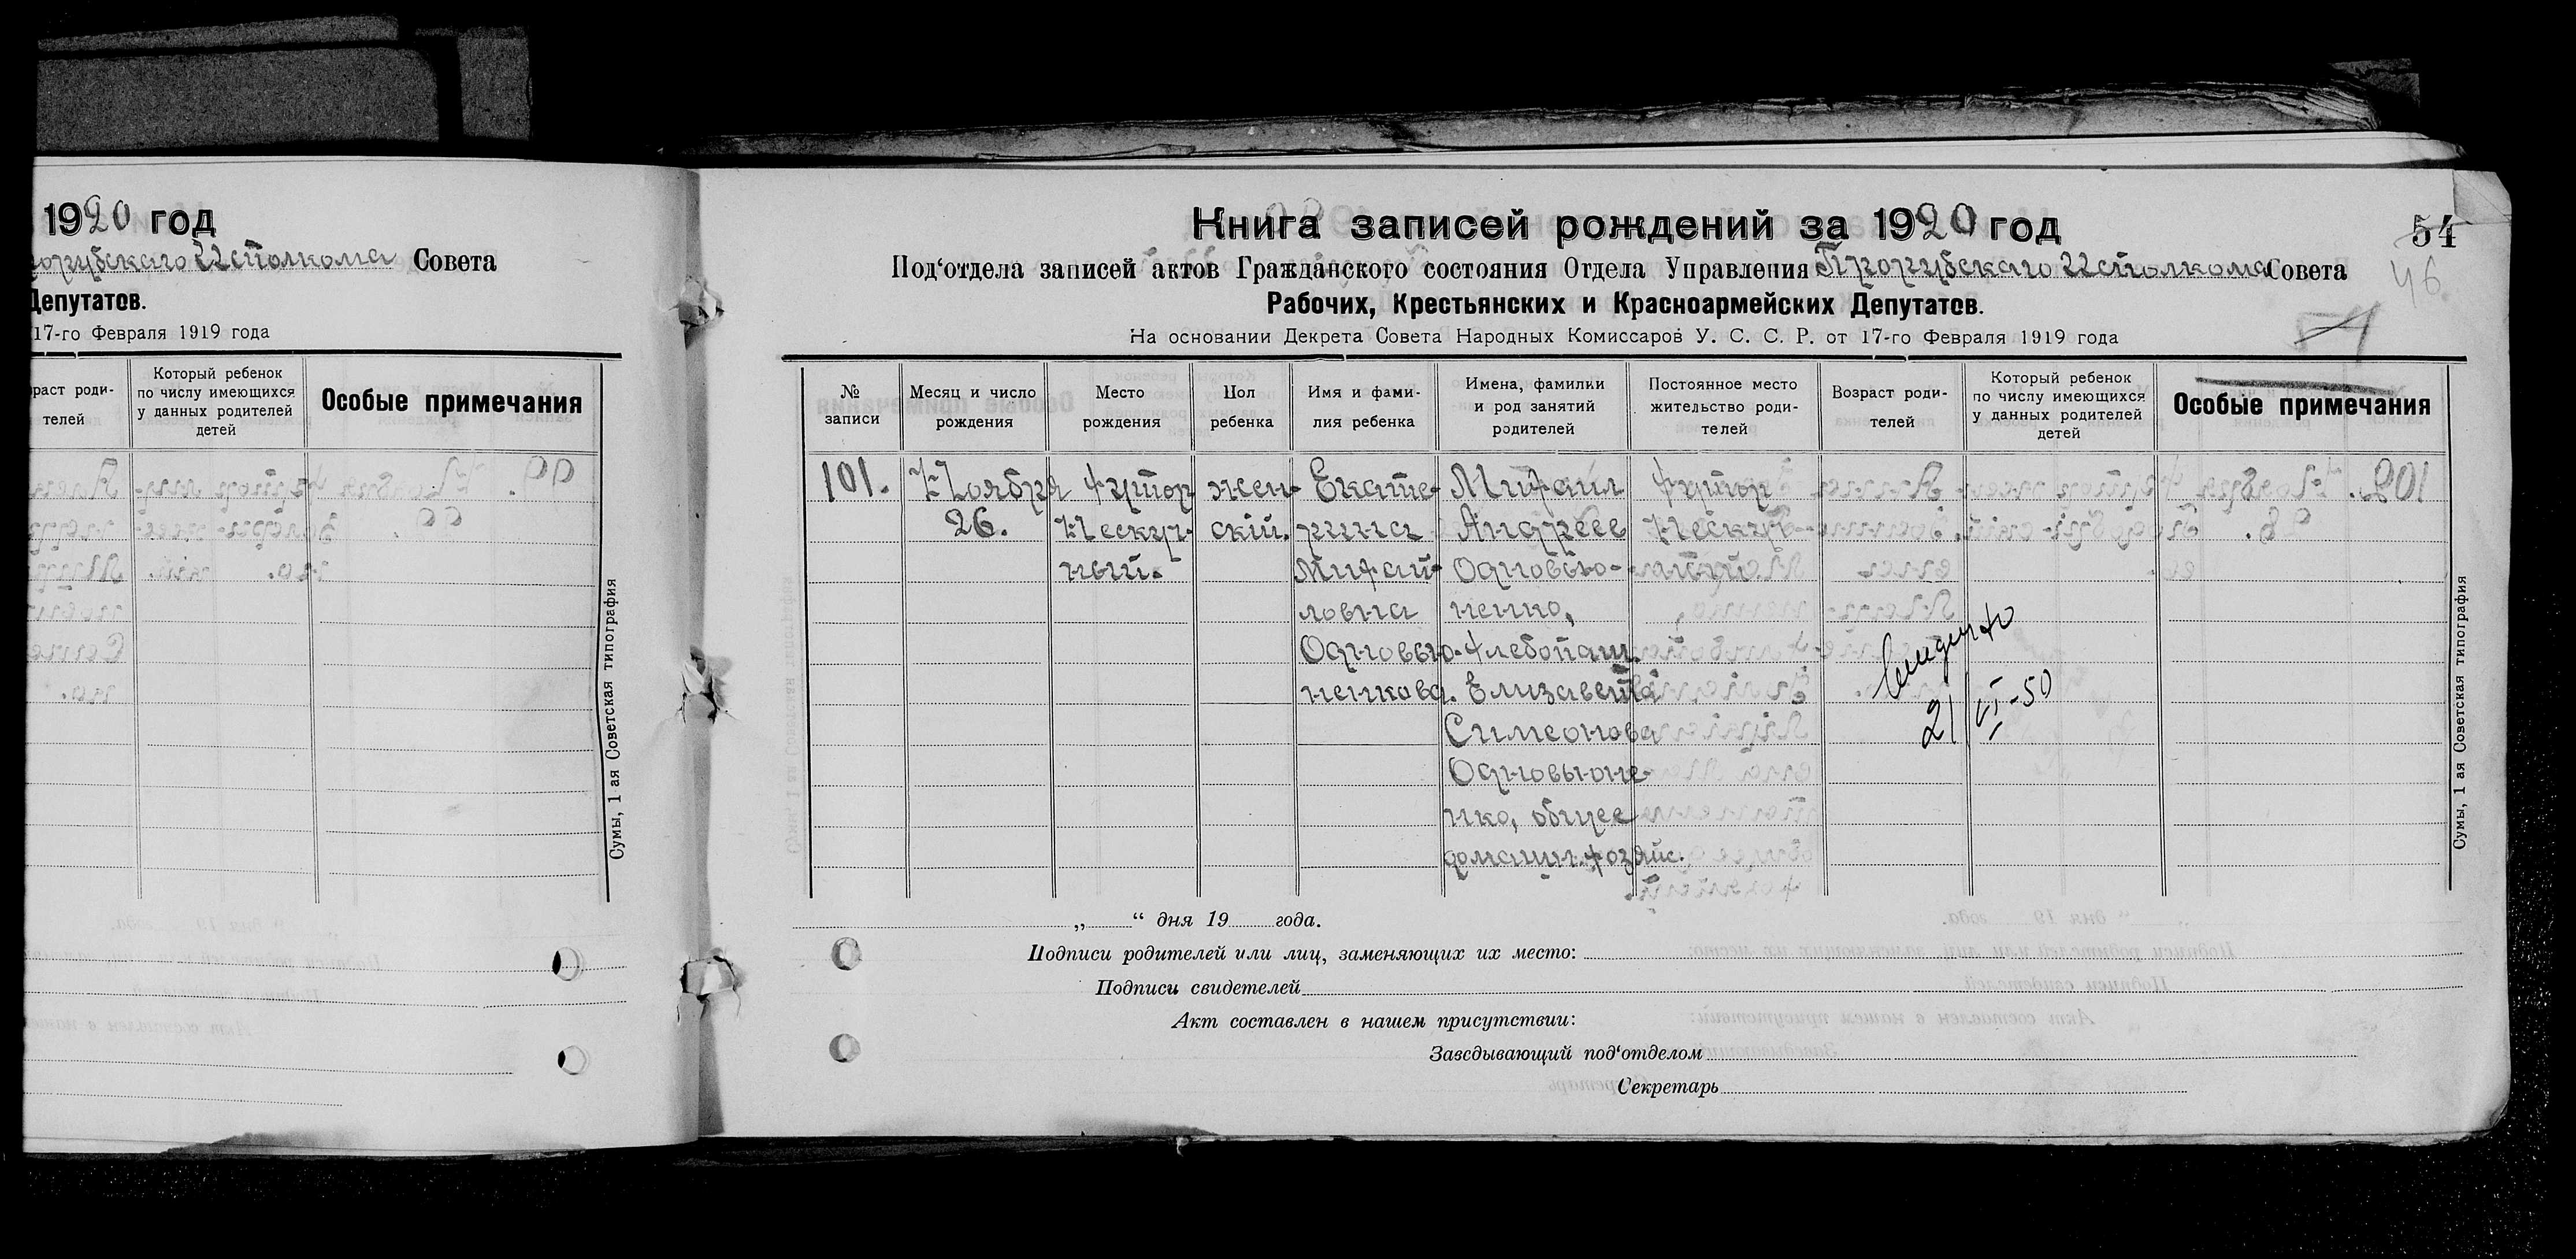 1920 год
Исполкома Совета
Депутатов.
17-го Февраля 1919 года
раст роди-
телей
Который ребенок
по числу имеющихся
у данных родителей
детей
Особые примечания
Сумы, 1 ая Советская типография
Книга записей рождений за 1920 год
54
46.
Под‘отдела записей актов Гражданского состояния Отдела Управления Прорубского Исполкома Совета
Рабочих, Крестьянских и Красноармейских Депутатов.
На основании Декрета Совета Народных Комиссаров У. С. С. Р. от 17-го Февраля 1919 года
№
записи
Месяц и число
рождения
Место
рождения
Пол
ребенка
Имя и фами-
лия ребенка
Имена, фамилии
и род занятий
родителей
Постоянное место
жительство роди-
телей
Возраст роди-
телей
Который ребенок
по числу имеющихся
у данных родителей
детей
Особые примечания
101.
Ноября
26.
хутор
Нескуч-
ный.
жен-
скій.
Екате-
рина
Михай-
ловна
Одновью-
ненкова.
Михаил
Андреев
Одновью-
ненко,
хлебопаш.
Елизавета
Симеонова
Одновьюне-
нко, общее
домашн. хозяйс.
хутор
Нескуч-
21/VI-50
Сумы, 1 ая Советская типография
„ “ дня 19 года.
Подписи родителей или лиц, заменяющих их место:
Подписи свидетелей
Акт составлен в нашем присутствии:
Заведывающий под‘отделом
Секретарь